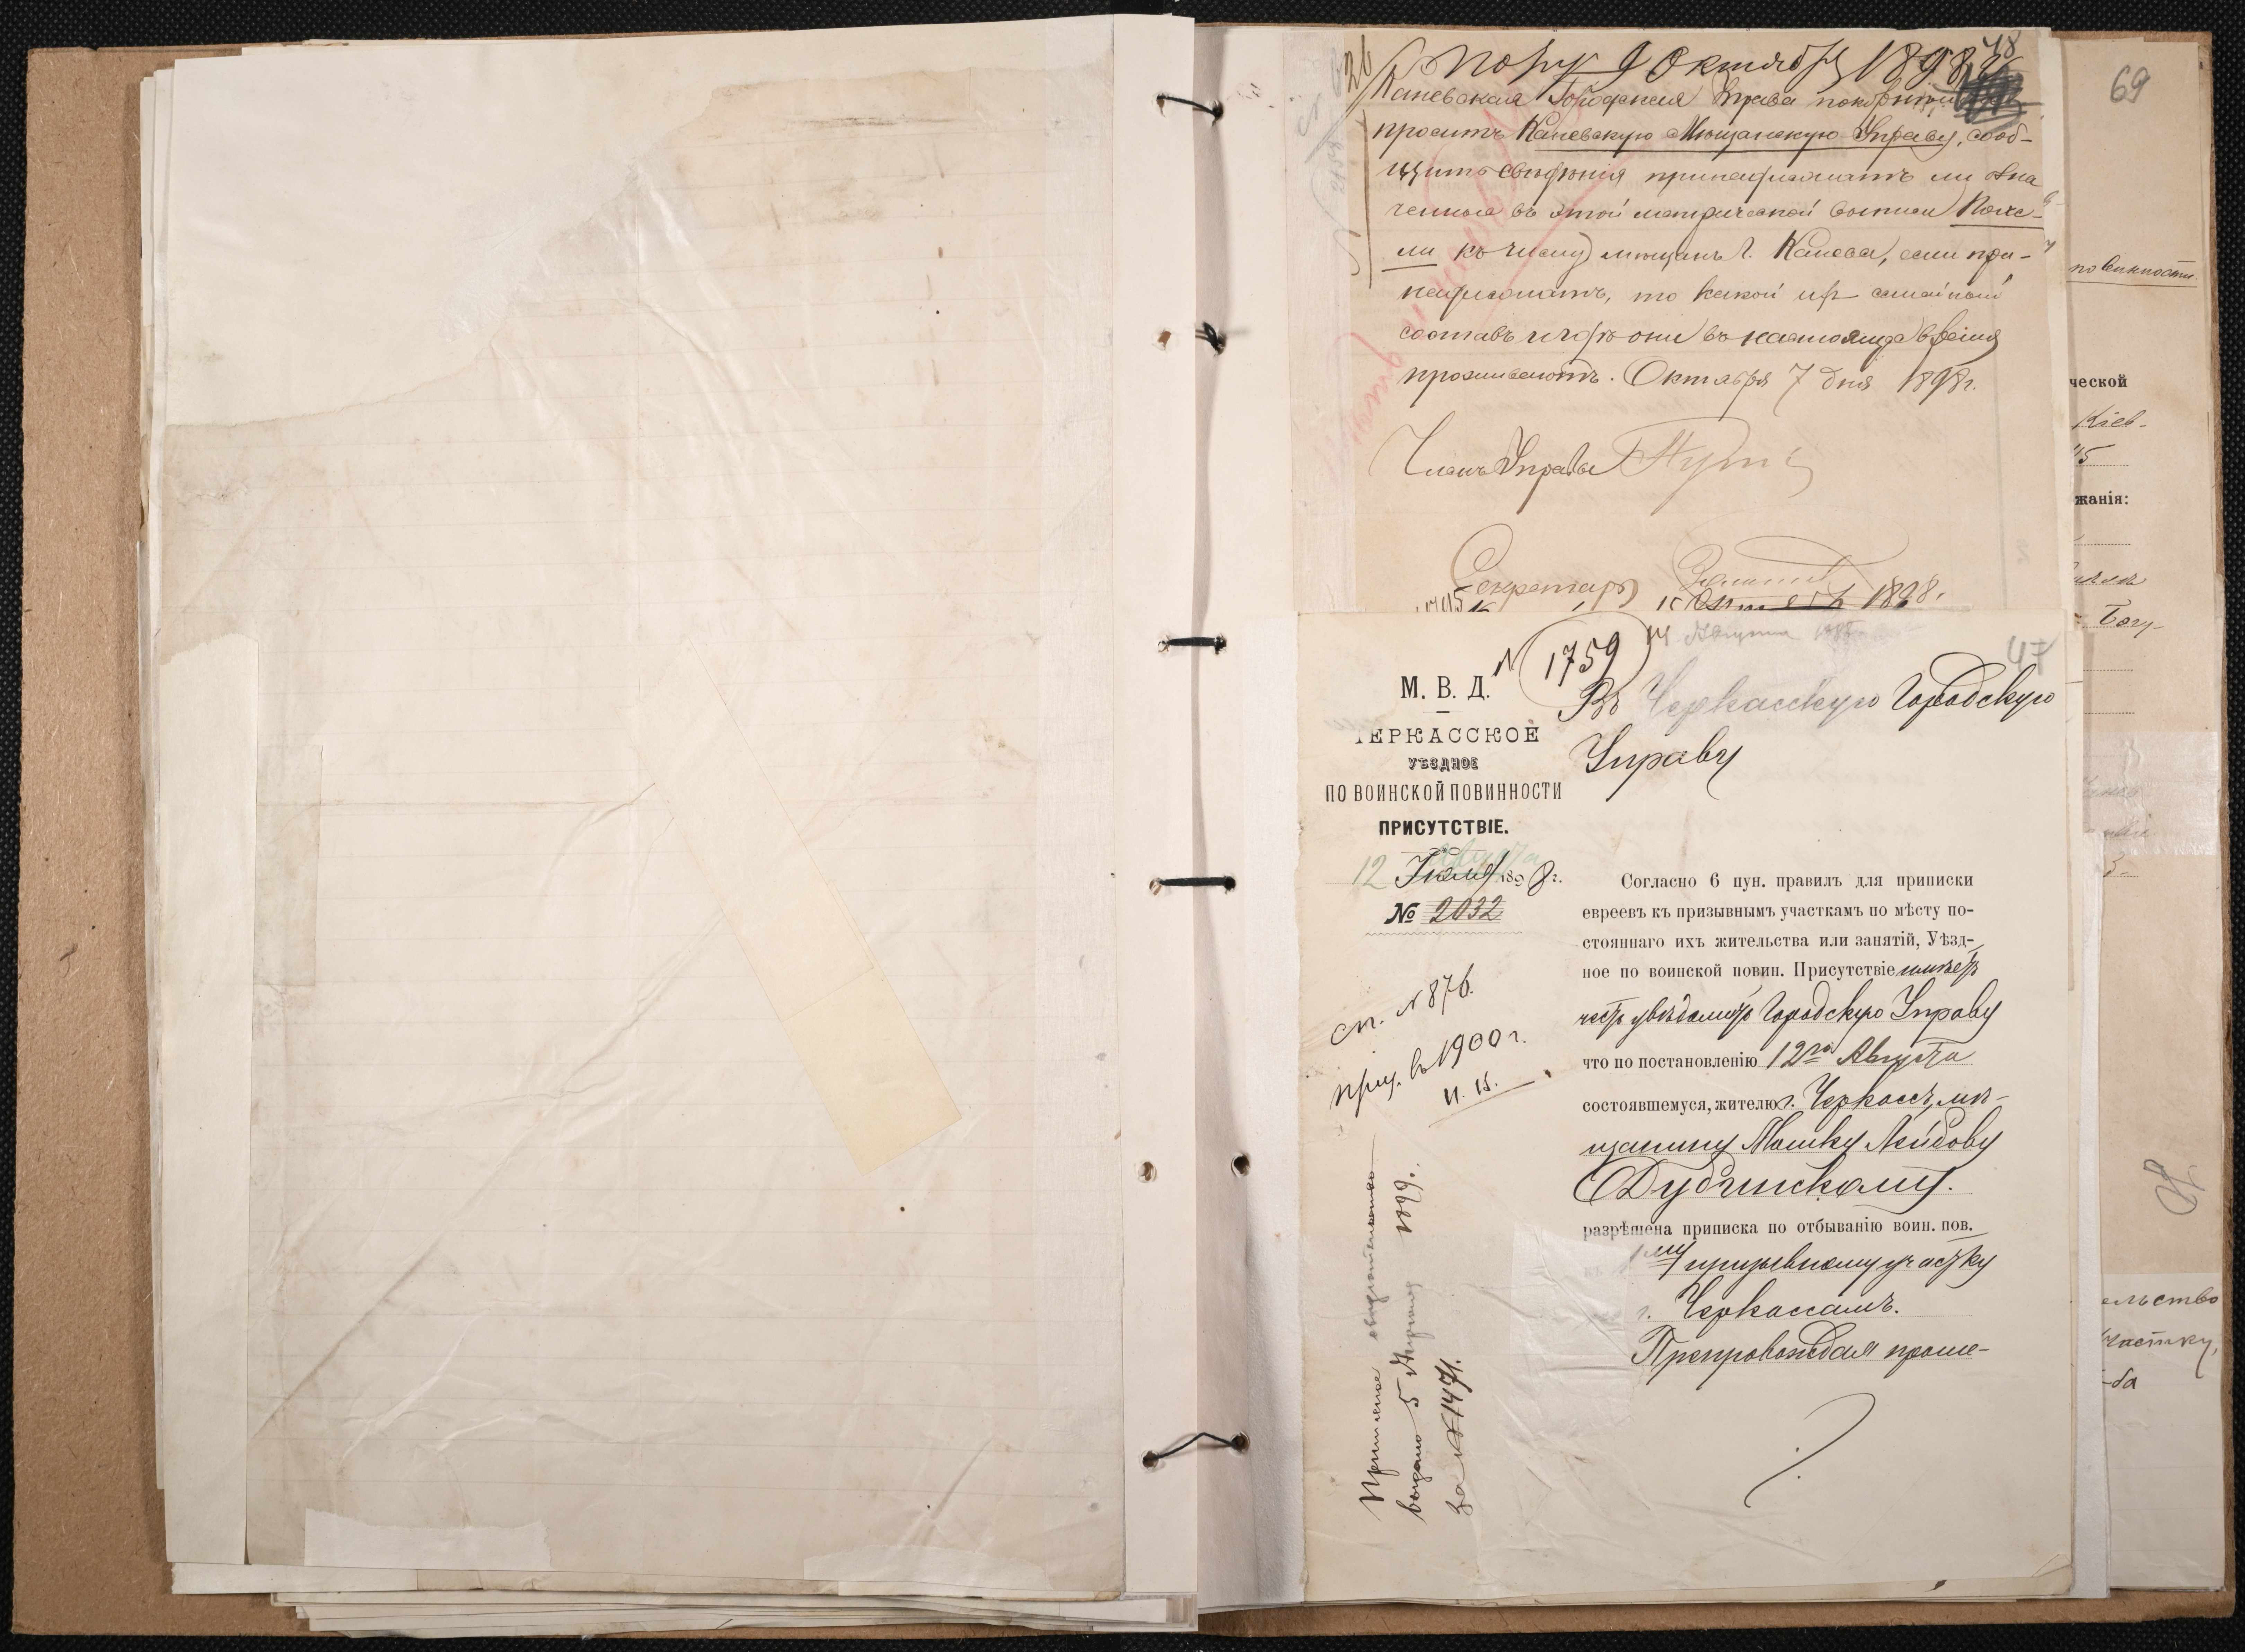 26
48
Пол. 9 Октября 1898 г.
Каневская Городская Управа покорнейше
проситъ Каневскую Мѣщанскую Управу, сооб-
щить свѣдѣнія принадлежатъ ли озна
ченные въ этой метрической выписи
ли къ числу мѣщанъ г. Канева, если при-
надлежатъ, то какой ихъ семейный
составъ и гдѣ они въ настоящее время
проживаютъ. Октября 7 дня 1898 г.
Членъ Управы
Секретарь
1898.
47
N 1759
14 Августа
М. В. Д.
ЧЕРКАССКОЕ
УѢЗДНОЕ
ПО ВОИНСКОЙ ПОВИННОСТИ
ПРИСУТСТВІЕ.
12 Августа
Іюля 1898 г.
№ 2032
Въ Черкасскую Городскую
Управу
Согласно 6 пун. правилъ для приписки
евреевъ къ призывнымъ участкамъ по мѣсту по-
стояннаго ихъ жительства или занятій, Уѣзд-
ное по воинской повин. Присутствіе имѣетъ
честь увѣдомить Городскую Управу
что по постановленію 12го Августа
состоявшемуся, жителю г. Черкассъ, мѣ-
щанину Мошку Лейбову
Дубчинскому.
разрѣшена приписка по отбыванію воин. пов.
къ 1му призывному участку
г. Черкассамъ.
Препровождая проше-
сп. N 876.
приз. въ 1900 г.
Приписное свидѣтельство
выдано 5 Февраля 1899 г.
за N 1471.
69
повинности
ческой
Кіев-
15
жанія:
Бог-
3-
ельство
участку,
-ба